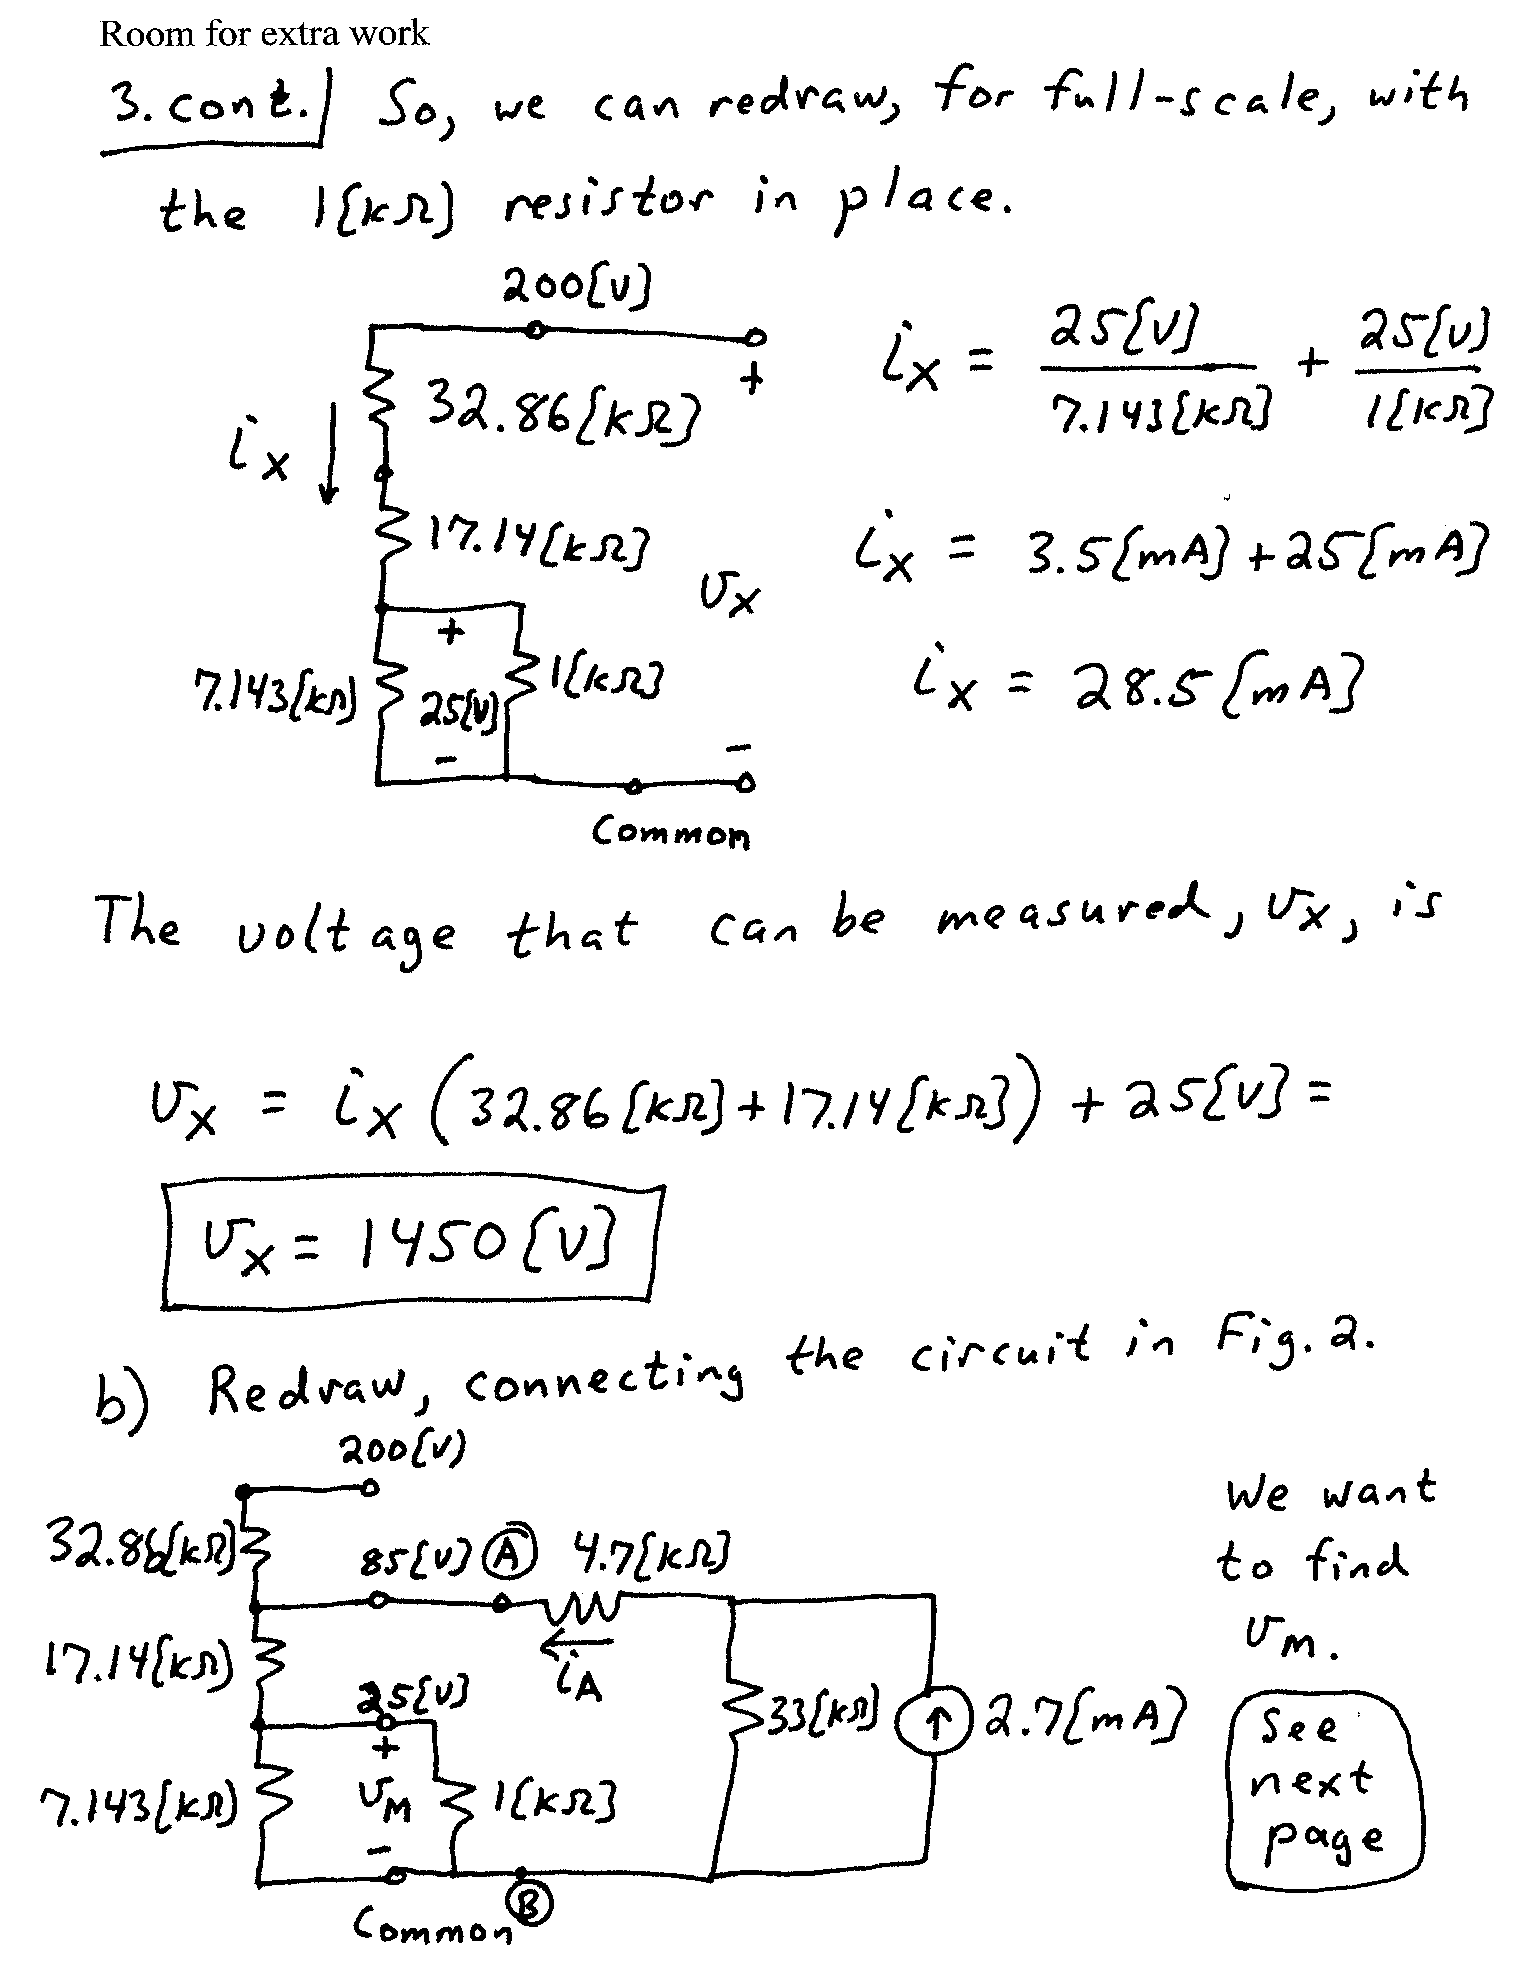 Room for extra work
3. cont. So, we can redraw, for full-scale, with
the 1[kΩ] resistor in place.
200[V]
+
32.86[kΩ]
iX
17.14[kΩ]
vX
+
7.143[kΩ]
25[V]
1[kΩ]
-
-
Common
iX = 25[V] / 7.143[kΩ] + 25[V] / 1[kΩ]
iX = 3.5[mA] + 25[mA]
iX = 28.5[mA]
The voltage that can be measured, vX, is
vX = iX (32.86[kΩ] + 17.14[kΩ]) + 25[V] =
vX = 1450[V]
b) Redraw, connecting the circuit in Fig. 2.
200[V]
32.86[kΩ]
85[V] A 4.7[kΩ]
17.14[kΩ]
iA
25[V]
+
33[kΩ]
2.7[mA]
7.143[kΩ]
vM
1[kΩ]
-
B
Common
We want
to find
vM.
See
next
page